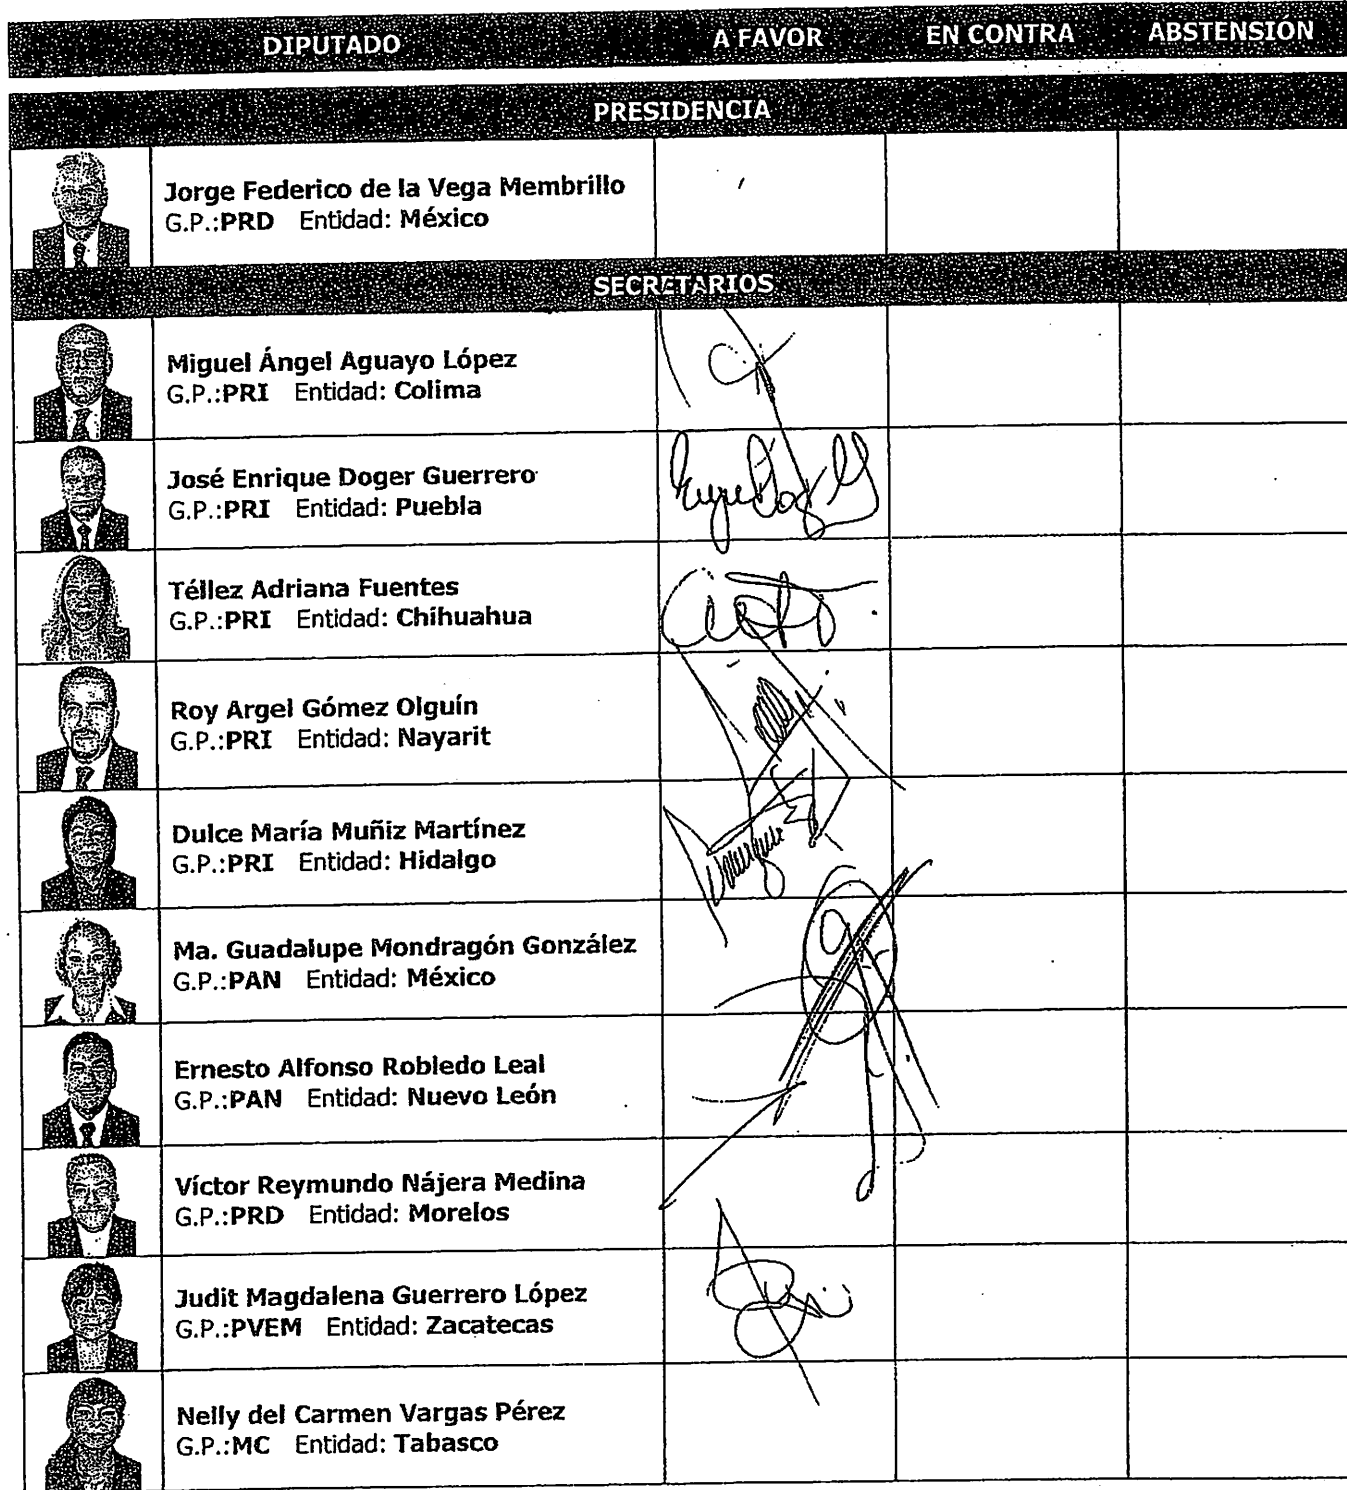 DIPUTADO A FAVOR EN CONTRA ABSTENSIÓN
PRESIDENCIA
Jorge Federico de la Vega Membrillo
G.P.:PRD Entidad: México
SECRETARIOS
Miguel Ángel Aguayo López
G.P.:PRI Entidad: Colima
José Enrique Doger Guerrero
G.P.:PRI Entidad: Puebla
Téllez Adriana Fuentes
G.P.:PRI Entidad: Chihuahua
Roy Argel Gómez Olguín
G.P.:PRI Entidad: Nayarit
Dulce María Muñiz Martínez
G.P.:PRI Entidad: Hidalgo
Ma. Guadalupe Mondragón González
G.P.:PAN Entidad: México
Ernesto Alfonso Robledo Leal
G.P.:PAN Entidad: Nuevo León
Víctor Reymundo Nájera Medina
G.P.:PRD Entidad: Morelos
Judit Magdalena Guerrero López
G.P.:PVEM Entidad: Zacatecas
Nelly del Carmen Vargas Pérez
G.P.:MC Entidad: Tabasco